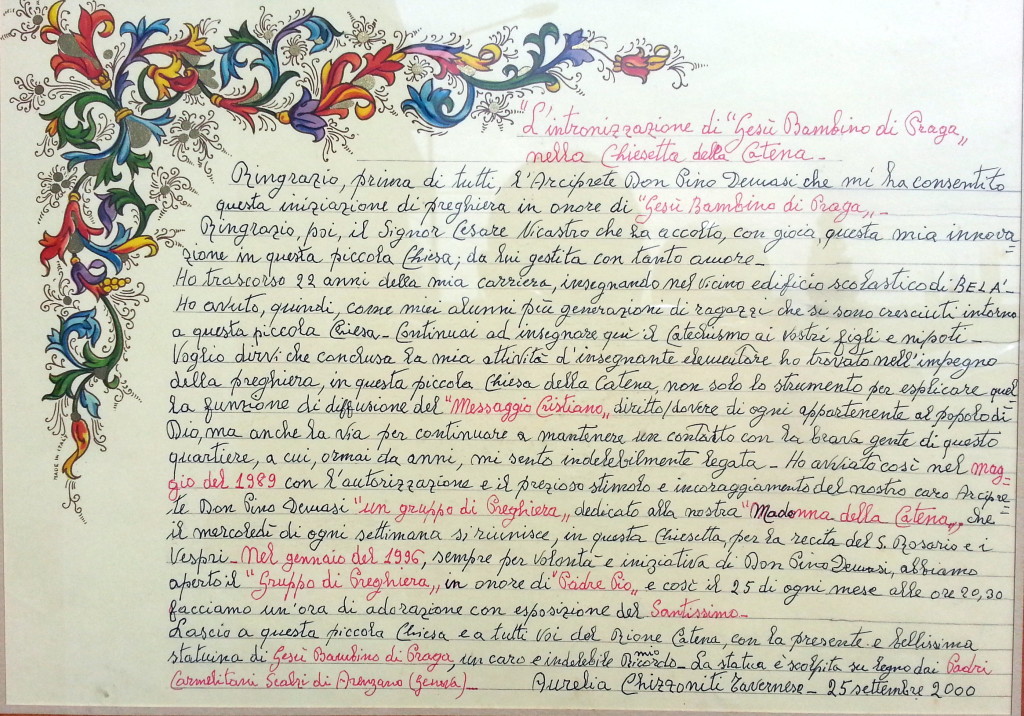 "L'intronizzazione di "Gesù Bambino di Praga„
nella Chiesetta della Catena_
Ringrazio, prima di tutti, l'Arciprete Don Pino Demasi che mi ha consentito
questa iniziazione di preghiera in onore di "Gesù Bambino di Praga„_
Ringrazio, poi, il Signor Cesare Nicastro che ha accolto, con gioia, questa mia innova=
zione in questa piccola Chiesa; da lui gestita con tanto amore_
Ho trascorso 22 anni della mia carriera, insegnando nel vicino edificio scolastico di BELA'_
Ho avuto, quindi, come miei alunni più generazioni di ragazzi che si sono cresciuti intorno
a questa piccola Chiesa_ Continuai ad insegnare qui il Catechismo ai vostri figli e nipoti_
Voglio dirvi che conclusa la mia attività d'insegnante elementare ho trovato nell'impegno
della preghiera, in questa piccola Chiesa della Catena, non solo lo strumento per esplicare quel
la funzione di diffusione del "Messaggio Cristiano„ diritto/dovere di ogni appartenente al popolo di
Dio, ma anche la via per continuare a mantenere un contatto con la brava gente di questo
quartiere, a cui, ormai da anni, mi sento indelebilmente legata_ Ho avviato così nel mag=
gio del 1989 con l'autorizzazione e il prezioso stimolo e incoraggiamento del nostro caro Arcipre=
te Don Pino Demasi "un gruppo di Preghiera„ dedicato alla nostra "Madonna della Catena„, che
il mercoledì di ogni settimana si riunisce, in questa Chiesetta, per la recita del S. Rosario e i
Vespri_ Nel gennaio del 1996, sempre per volontà e iniziativa di Don Pino Demasi, abbiamo
aperto il "Gruppo di Preghiera„ in onore di "Padre Pio„ e così il 25 di ogni mese alle ore 20,30
facciamo un'ora di adorazione con esposizione del Santissimo_
Lascio a questa piccola Chiesa e a tutti voi del Rione Catena, con la presente e bellissima
statuina di Gesù Bambino di Praga, un caro e indelebile mio Ricordo_ La statua è scolpita su legno dai Padri
Carmelitani Scalzi di Arenzano (Genova)_ Aurelia Chizzoniti Tavernese_ 25 settembre 2000
MADE IN ITALY